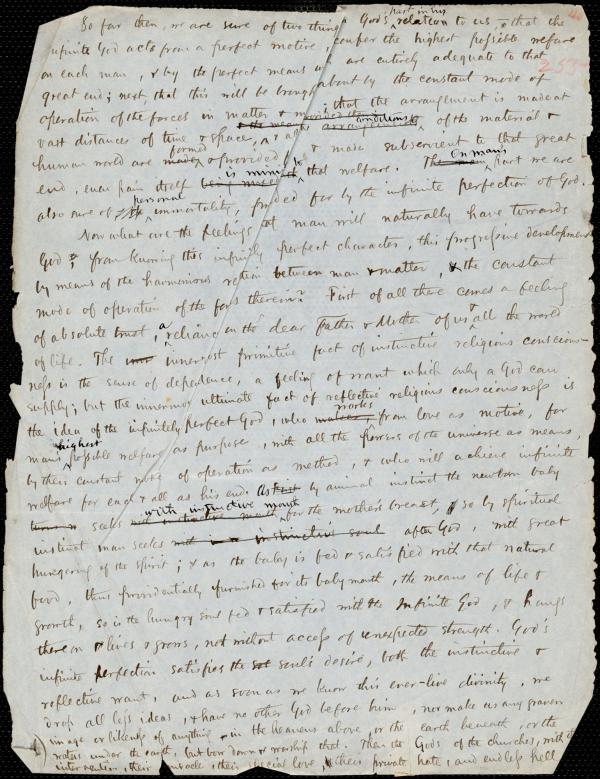 So far then, we are sure of two things God's part in his relation to us, & that the
infinite God acts from a perfect motive, confer the highest possible welfare
on each man, & by the perfect means wh are entirely adequate to that
great end; next, that this will be brought about by the constant mode of
operation of the forces in matter & that the arrangement is made at
vast distances of time & space, & all conditions of the material &
human world are formed & provided & made subservient to that great
end, even pain itself is ministr to that welfare. On man's part we are
also sure of personal immortality, provided for by the infinite perfection of God.
Now what are the feelings that man will naturally have towards
God; from knowing this infinitely perfect character, this progressive development
by means of the harmonious relation between man & matter, & the constant
mode of operation of the forces therein? First of all there comes a feeling
of absolute trust, a reliance on the dear Father & Mother of us & all the world
of life. The innermost primitive fact of instinctive religious conscious-
ness is the sense of dependence, a feeling of want which only a God can
supply; but the innermost ultimate fact of reflective religious consciousness is
the idea of the infinitely perfect God, who works from love as motive, for
man's highest possible welfare as purpose, with all the powers of the universe as means,
by their constant mode of operation as method, & who will achieve infinite
welfare for each & all as his end. As by animal instinct the newborn baby
seeks with instinctive mouth for the mother's breast, so by spiritual
instinct man seeks after God, with great
hungering of the spirit; & as the baby is fed & satisfied with that natural
food, thus providentially furnished for its baby mouth, the means of life &
growth, so is the hungry soul fed & satisfied with the Infinite God, & hangs
thereon & lives & grows, not without access of unexpected strength. God's
infinite perfection satisfies the soul's desire, both the instinctive &
reflective want, and as soon as we know this ever-live divinity, we
drop all less ideas, & have no other God before him, nor make us any graven
image or likeness of anything in the heavens above, or the earth beneath, or the
waters under the earth, but bow down & worship that. Then the Gods of the churches, with
intervention, their miracle, their special love & their private hate, and endless hell
253